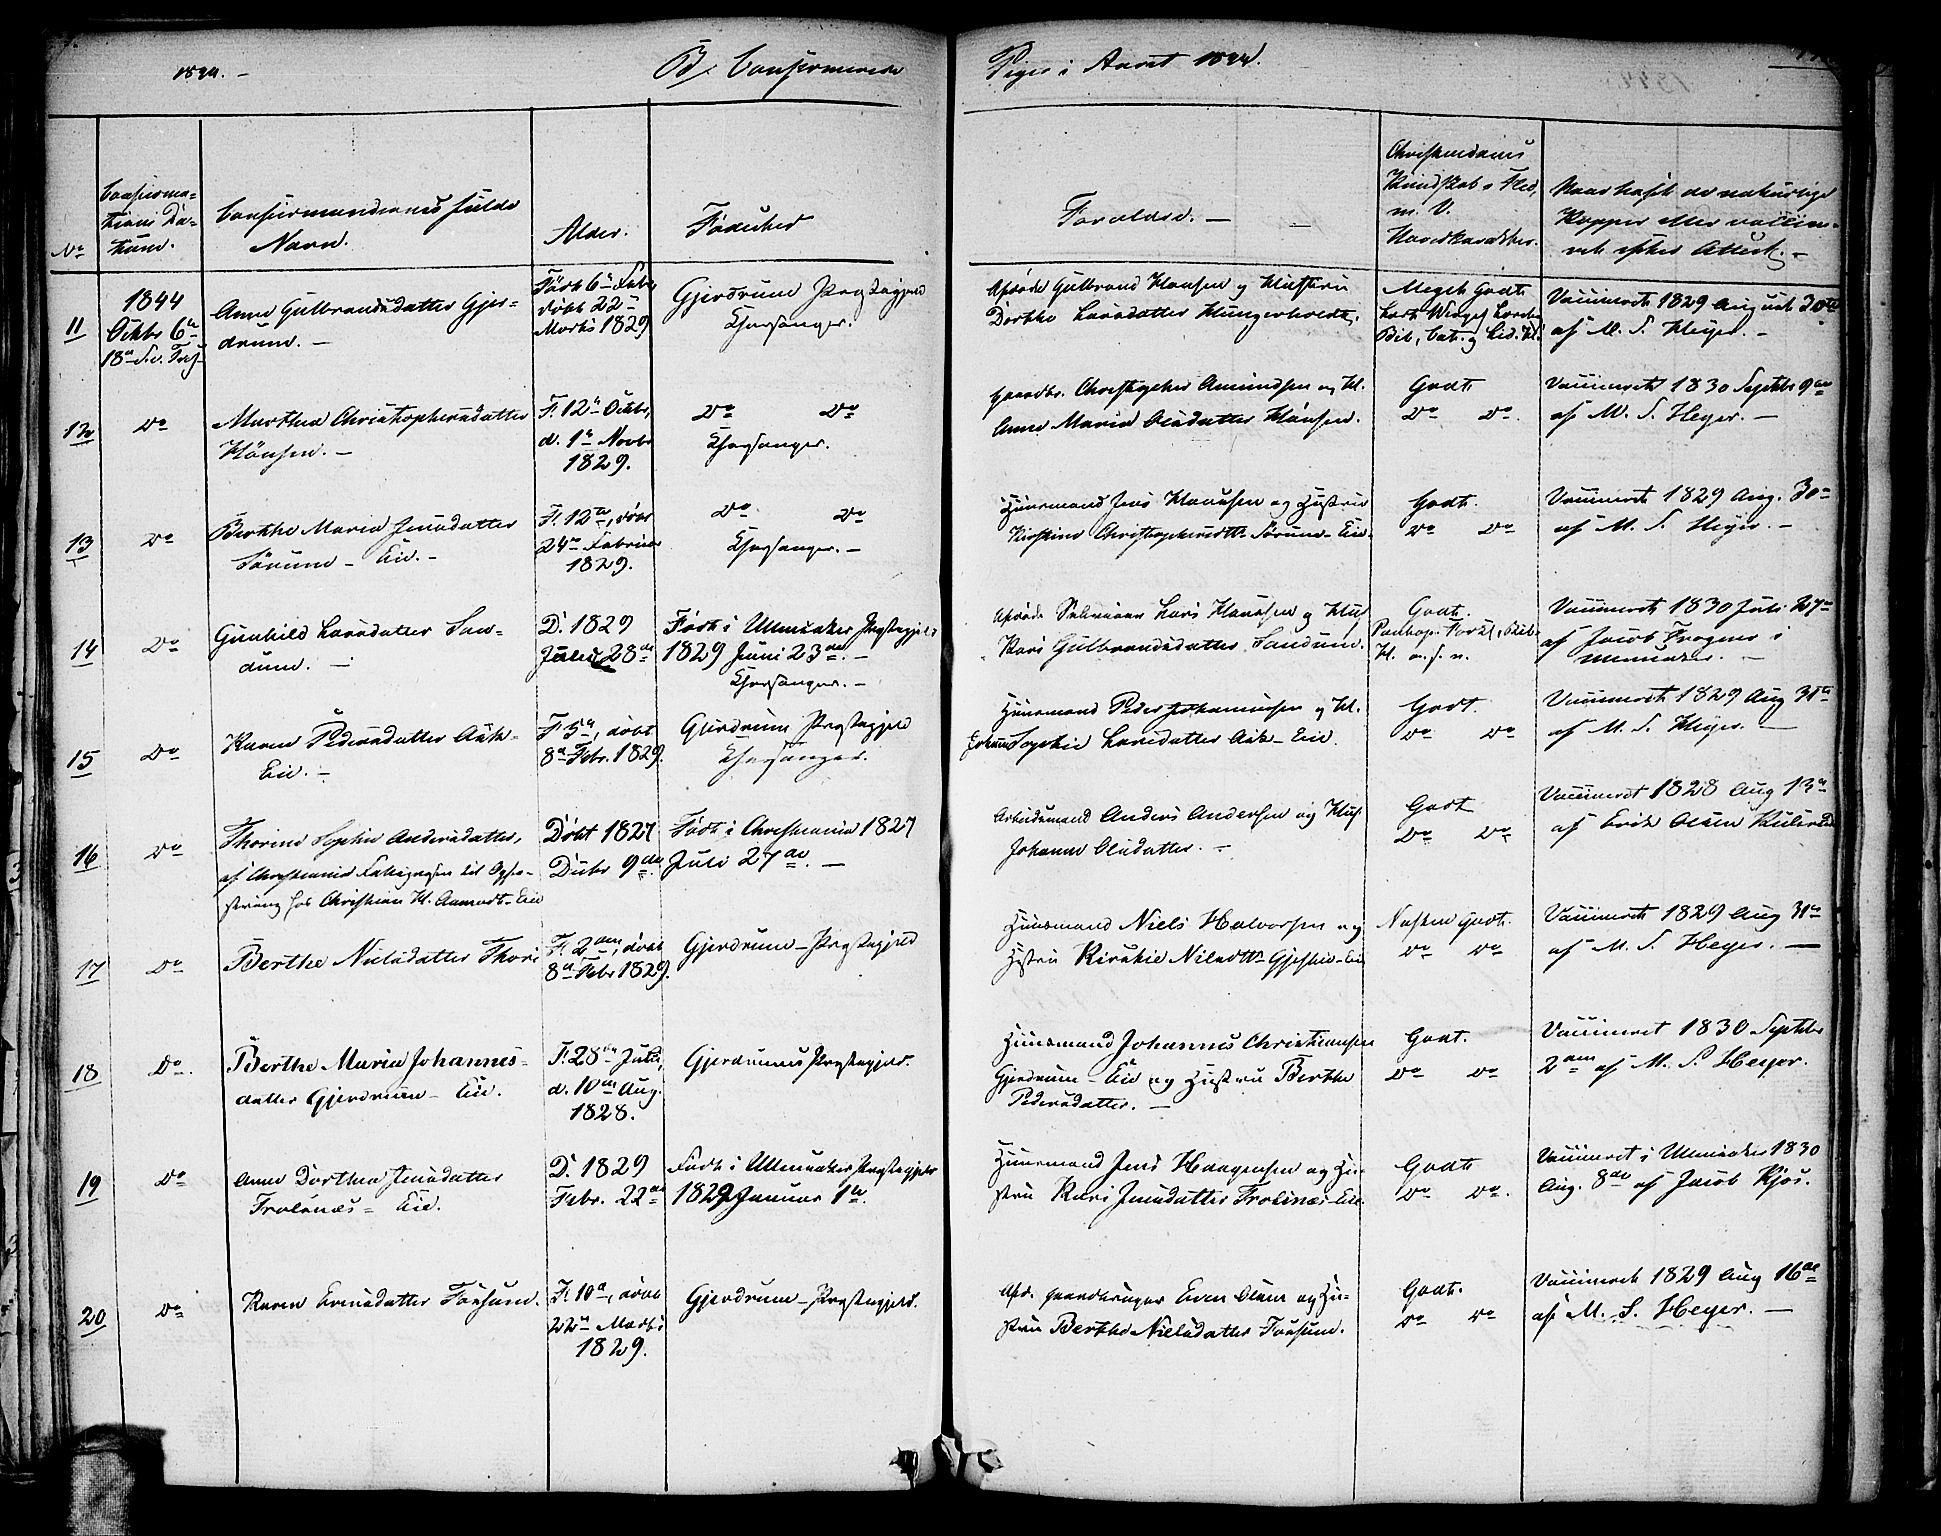 1844. –
B. Confirmerede
Piger i Aaret 1844.
No
Confirma-
tions Da-
tum.
Confirmandernes fulde
Navn.
Alder.
Fødested
Forældre. –
Christendoms
Kundskab og Flid,
m. V.
Naar haft de naturlige
Kopper eller vaccine-
ret efter Attest. –
11
1844
Octbr 6te
Anne Gulbrandsdatter Gjer-
drum. –
Født 6te Febr,
døbt 22de
Marts 1829
Gjerdrum Præstegjeld
Afdøde Gulbrand Hansen og Hustru
Dorthe Larsdatter Hungerholdt.
Meget Godt
Vaccineret 1829 August 30te
af M. S. Heyer. –
12
Do
Marthea Christophersdatter
Hønsen. –
F. 12te Octbr,
d. 1te Novbr
1829.
Do Do
Gaardbr. Christopher Amundsen og H.
Anne Maria Olsdatter Hønsen.
Godt
Do Do.
Vaccineret 1830 Septbr 9de
af M. S. Heyer. –
13
Do
Berthe Maria Jensdatter
Sørum – Eie. –
F. 12te, døbt
24de Februar
1829.
Do Do
Huusmand Jens Hansen og Hustru
Kirstine Christophersdtr Sørum-Eie.
Godt.
Do Do
Vaccineret 1829 Aug. 30te
af M. S. Heyer. –
14
Do
Gunhild Larsdatter San-
dum. –
D. 1829
Juni 28de
Født i Ullensaker Præstegjeld
1829 Juni 23de. –
Afdøde Lars Hansen og Hus
Kari Gulbrandsdatter Sandum.
Godt.
Vaccineret 1830 Juli 27de
af Jacob Frogner i
Ullensaker. –
15
Do
Karen Pedersdatter Ask-
Eie. –
F. 5te, døbt
8de Febr. 1829.
Gjerdrum Præstegjeld
Huusmand Peder Johannesen og H.
Johanne Sophie Larsdatter Ask-Eie.
Godt.
Do Do
Vaccineret 1829 Aug 31te
af M. S. Heyer. –
16
Do
Thorine Sophie Andersdatter,
af Christiania Fattigvæsen til Opfo-
string hos Christian H. Aamodt-Eie
Døbt 1827
Decbr 9de.
Født i Christiania 1827
Juli 27de. –
Arbeidsmand Anders Andersen og Hus
Johanne Olsdatter. –
Godt
Do Do
Vaccineret 1828 Aug 13de
af Erik Olsen
17
Do
Berthe Nielsdatter
F. 2den, døbt
8de Febr 1829.
Gjerdrum-Præstegjeld
Huusmand Niels Halvorsen og
Hstru Kirstie Nilsdtr Gjestie-Eie
Næsten Godt.
Do Do
Vaccineret 1829 Aug 31te
af M. S. Heyer. –
18
Do.
Berthe Maria Johannes-
datter Gjerdrum – Eie.
F. 28de Juli,
d. 10de Aug.
1828.
Gjerdrums Præstegjeld.
Huusmand Johannes Christiansen
Gjerdrum – Eie og Hustru Berthe
Pedersdatter. –
Godt.
Do Do
Vaccineret 1830 Septbr
2den af M. S. Heyer.
19
Do
Anne Dorthea Jensdatter
Frolsnæs – Eie.
D. 1829
Febr. 22de
Født i Ullensaker Præstegjeld
1829 Januar 1te.
Huusmand Jens Haagensen og Hu-
stru Kari Jensdatter Frolsnæs-Eie.
Godt
Do Do.
Vaccineret i Ullensaker 1830
Aug. 8de af Jacob Kjos.
20
Do
Karen Evensdatter Fonsum.
F. 10de, døbt
22de Marts
1829.
Gjerdrum-Præstegjeld.
Afd. Gaardbruger Even Olsen og Hu-
stru Berthe Nielsdatter Fonsum.
Godt.
Do Do
Vaccineret 1829 Aug 16de
af M. S. Heyer. –